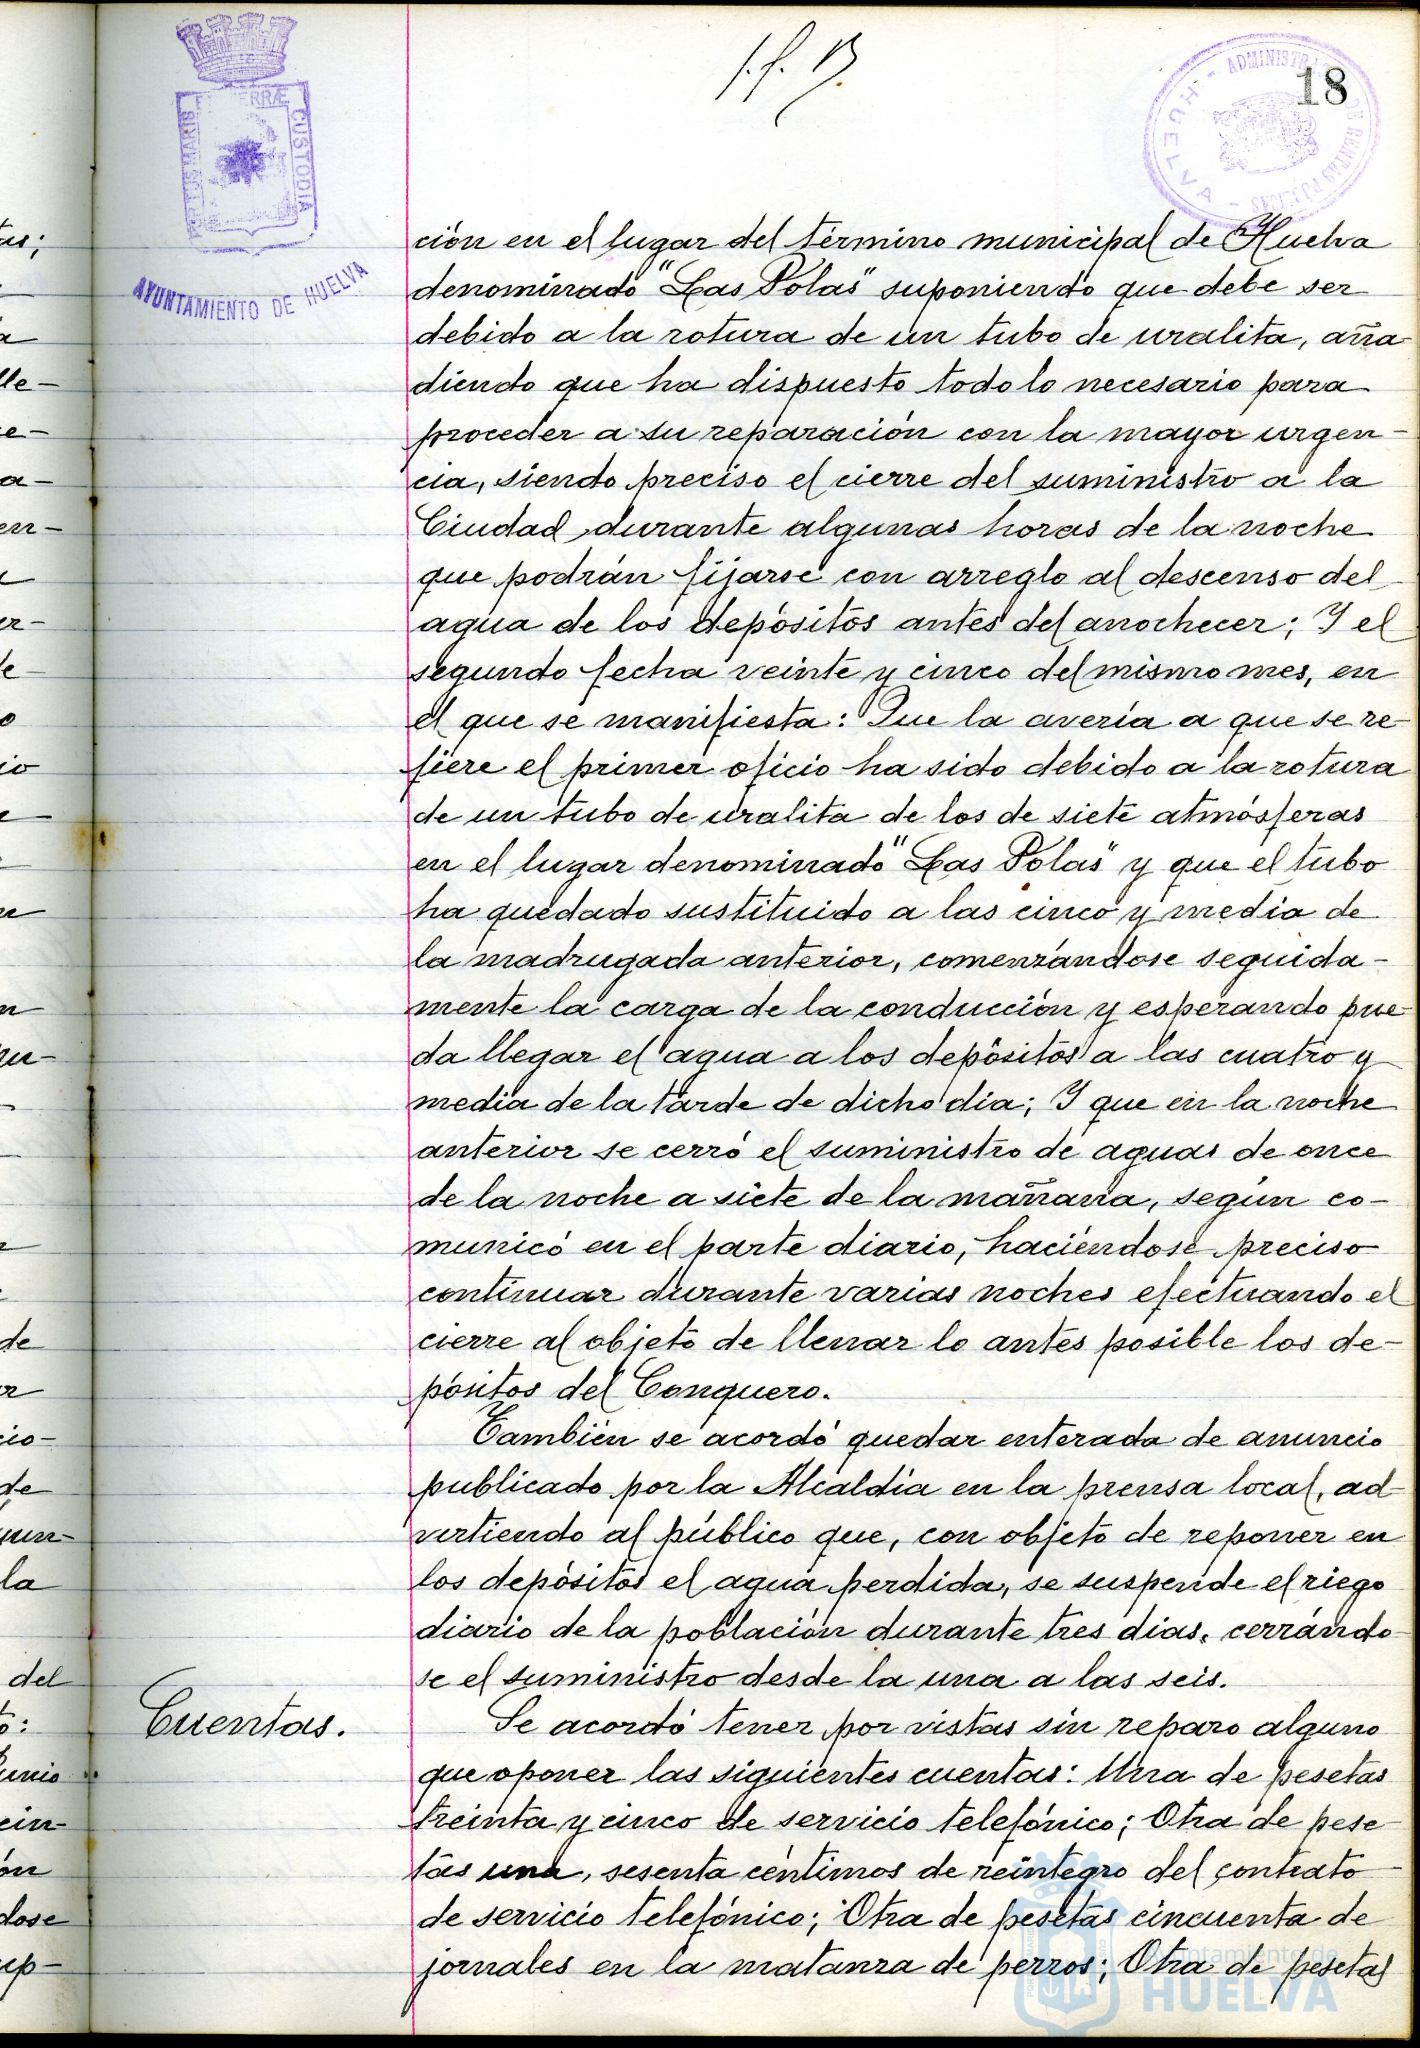 18
PORTUS MARIS ET TERRÆ CUSTODIA
AYUNTAMIENTO DE HUELVA
HUELVA
ción en el lugar del término municipal de Huelva
denominado "Las Polas" suponiendo que debe ser
debido a la rotura de un tubo de uralita, aña
diendo que ha dispuesto todo lo necesario para
proceder a su reparación con la mayor urgen-
cia, siendo preciso el cierre del suministro a la
Ciudad durante algunas horas de la noche
que podrán fijarse con arreglo al descenso del
agua de los depósitos antes del anochecer; Y el
segundo fecha veinte y cinco del mismo mes, en
el que se manifiesta: Que la avería a que se re-
fiere el primer oficio ha sido debido a la rotura
de un tubo de uralita de los de siete atmósferas
en el lugar denominado "Las Polas" y que el tubo
ha quedado sustituido a las cinco y media de
la madrugada anterior, comenzándose seguida-
mente la carga de la conducción y esperando pue-
da llegar el agua a los depósitos a las cuatro y
media de la tarde de dicho dia; Y que en la noche
anterior se cerró el suministro de aguas de once
de la noche a siete de la mañana, según co-
municó en el parte diario, haciéndose preciso
continuar durante varias noches efectuando el
cierre al objeto de llenar lo antes posible los de-
pósitos del Conquero.
También se acordó quedar enterada de anuncio
publicado por la Alcaldía en la prensa local, ad-
virtiendo al público que, con objeto de reponer en
los depósitos el agua perdida, se suspende el riego
diario de la población durante tres dias, cerrándo-
se el suministro desde la una a las seis.
Cuentas.
Se acordó tener por vistas sin reparo alguno
que oponer las siguientes cuentas: Una de pesetas
treinta y cinco de servicio telefónico; Otra de pese-
tas una, sesenta céntimos de reintegro del contrato
de servicio telefónico; Otra de pesetas cincuenta de
jornales en la matanza de perros; Otra de pesetas
Ayuntamiento de
HUELVA